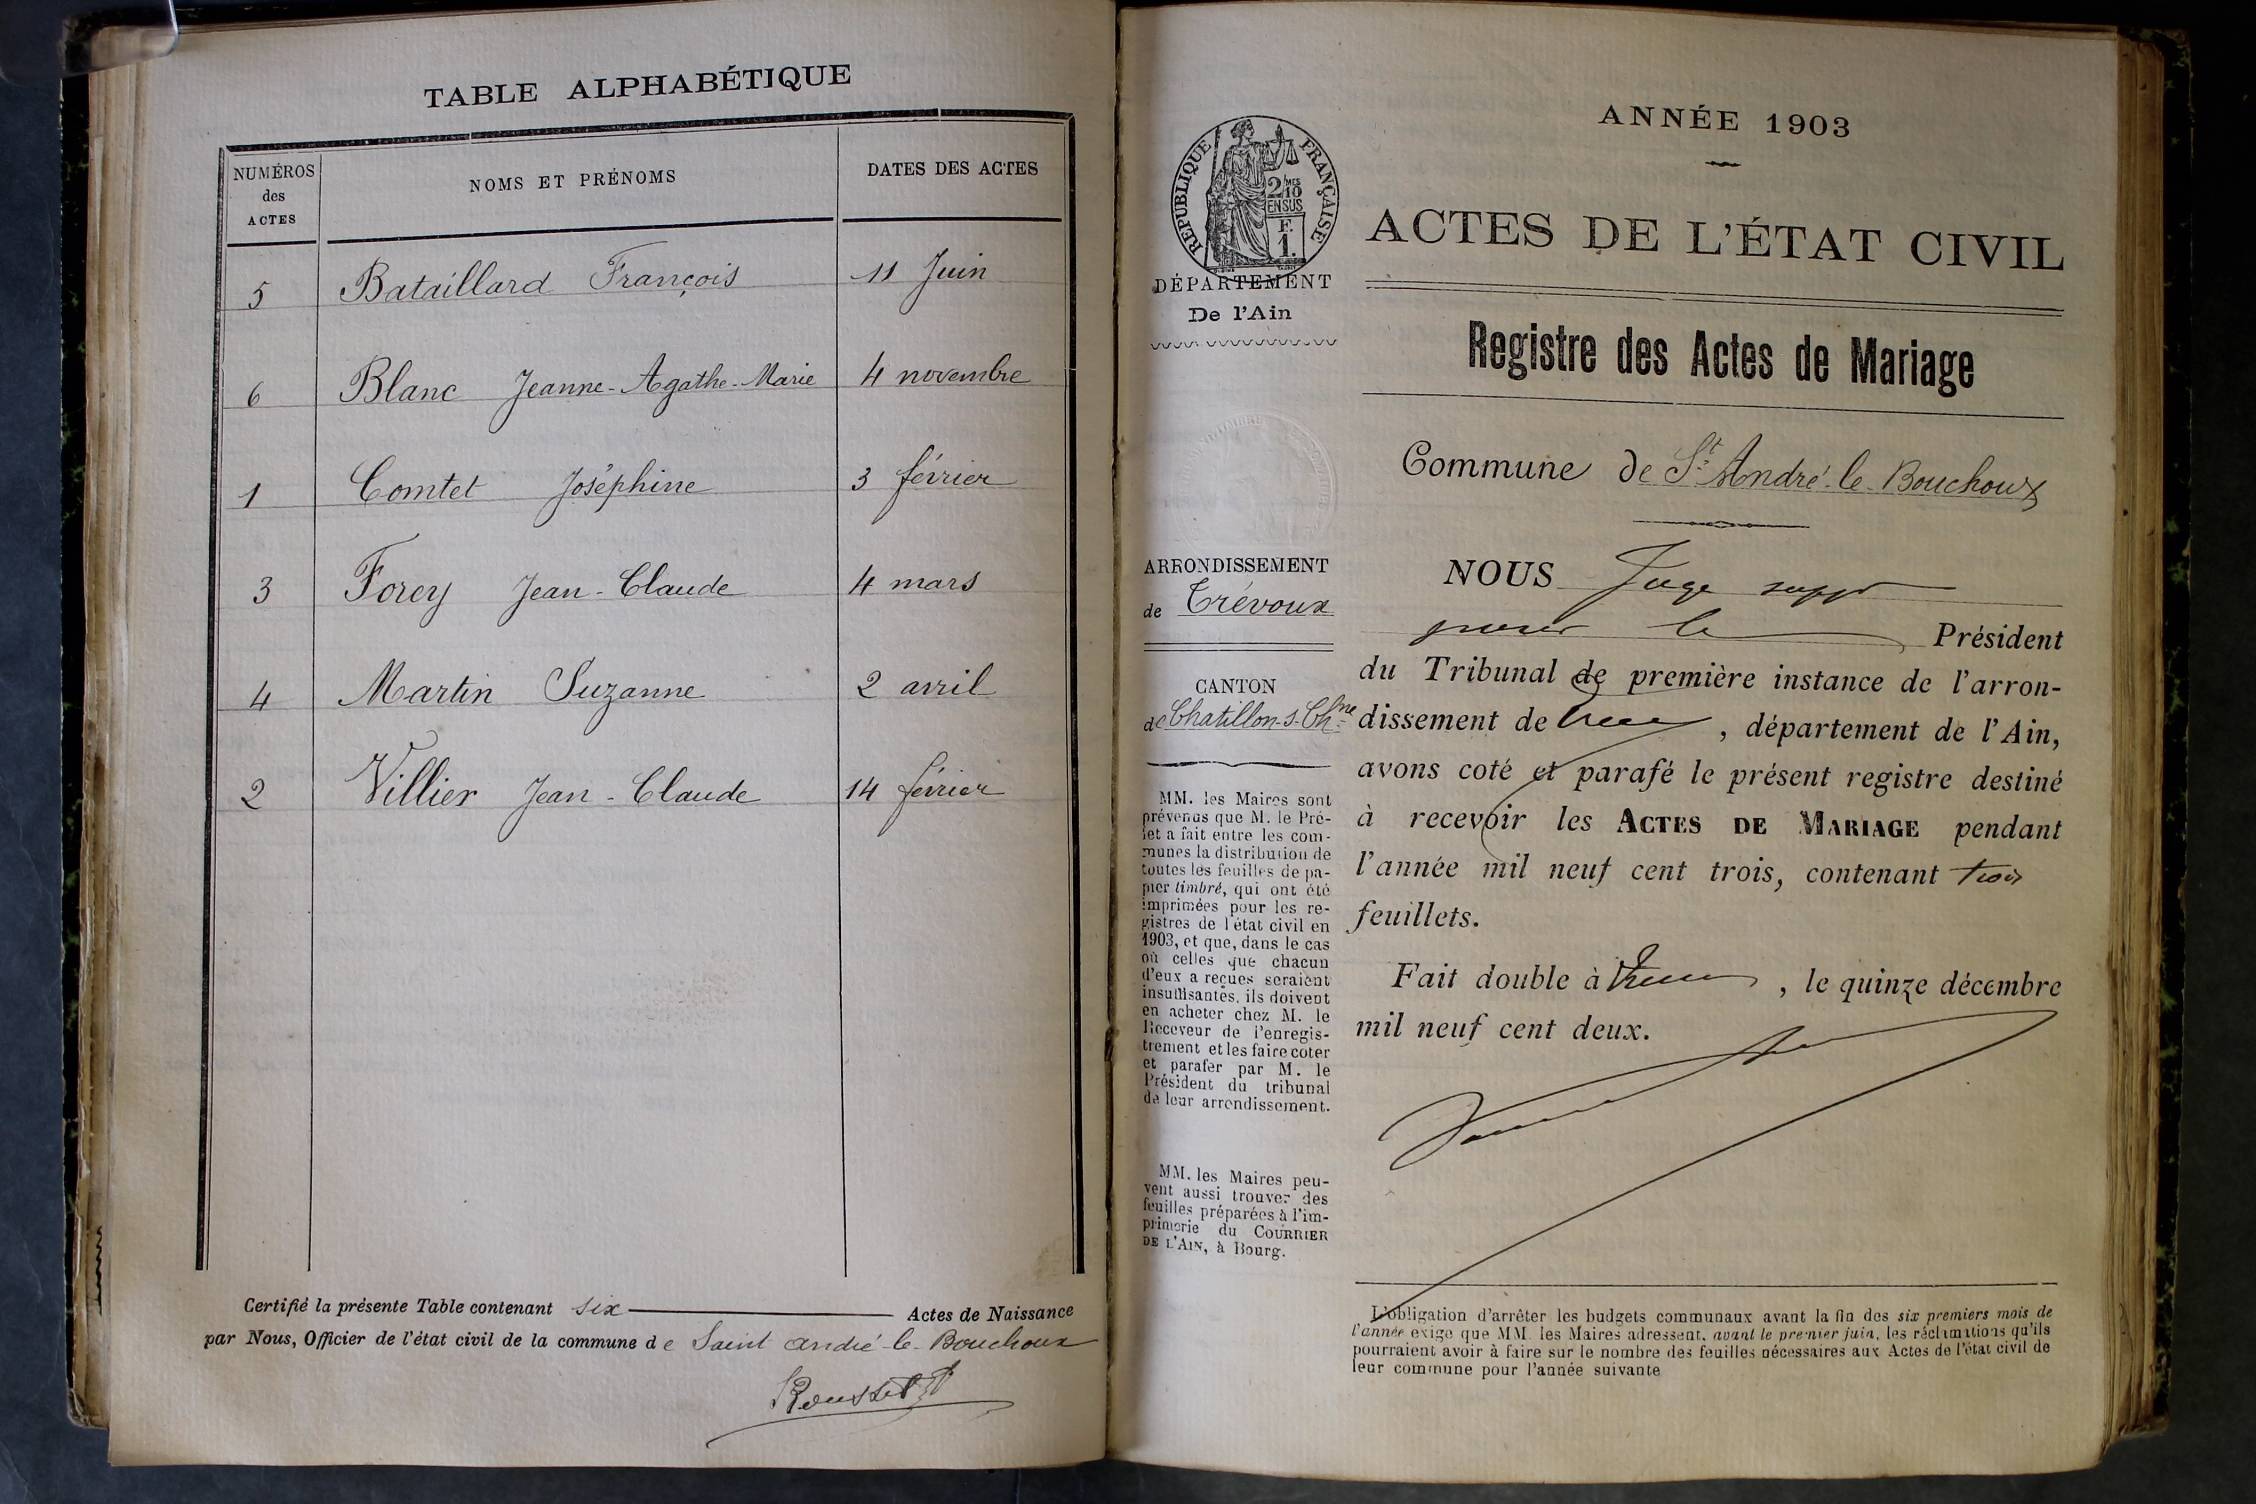 TABLE ALPHABÉTIQUE
NUMÉROS des ACTES
NOMS ET PRÉNOMS
DATES DES ACTES
5 Bataillard François 11 Juin
6 Blanc Jeanne-Agathe-Marie 4 novembre
1 Comtet Joséphine 3 février
3 Forey Jean-Claude 4 mars
4 Martin Suzanne 2 avril
2 Villier Jean-Claude 14 février
Certifié la présente Table contenant six Actes de Naissance
par Nous, Officier de l'état civil de la commune de Saint André-le-Bouchoux
RÉPUBLIQUE FRANÇAISE
2/10 MES
EN SUS
F.
1.
DÉPARTEMENT
De l'Ain
ARRONDISSEMENT
de Trévoux
CANTON
de Chatillon-s-Chne
MM. les Maires sont
prévenus que M. le Pré-
fet a fait entre les com-
munes la distribution de
toutes les feuilles de pa-
pier timbré, qui ont été
imprimées pour les re-
gistres de l'état civil en
1903, et que, dans le cas
où celles que chacun
d'eux a reçues seraient
insuffisantes, ils doivent
en acheter chez M. le
Receveur de l'enregis-
trement et les faire coter
et parafer par M. le
Président du tribunal
de leur arrondissement.
MM. les Maires peu-
vent aussi trouver des
feuilles préparées à l'im-
primerie du COURRIER
DE L'AIN, à Bourg.
ANNÉE 1903
ACTES DE L'ÉTAT CIVIL
Registre des Actes de Mariage
Commune de St André-le-Bouchoux
NOUS Juge suppt
pour le Président
du Tribunal de première instance de l'arron-
dissement de , département de l'Ain,
avons coté et parafé le présent registre destiné
à recevoir les ACTES DE MARIAGE pendant
l'année mil neuf cent trois, contenant trois
feuillets.
Fait double à , le quinze décembre
mil neuf cent deux.
L'obligation d'arrêter les budgets communaux avant la fin des six premiers mois de
l'année exige que MM. les Maires adressent, avant le premier juin, les réclamations qu'ils
pourraient avoir à faire sur le nombre des feuilles nécessaires aux Actes de l'état civil de
leur commune pour l'année suivante